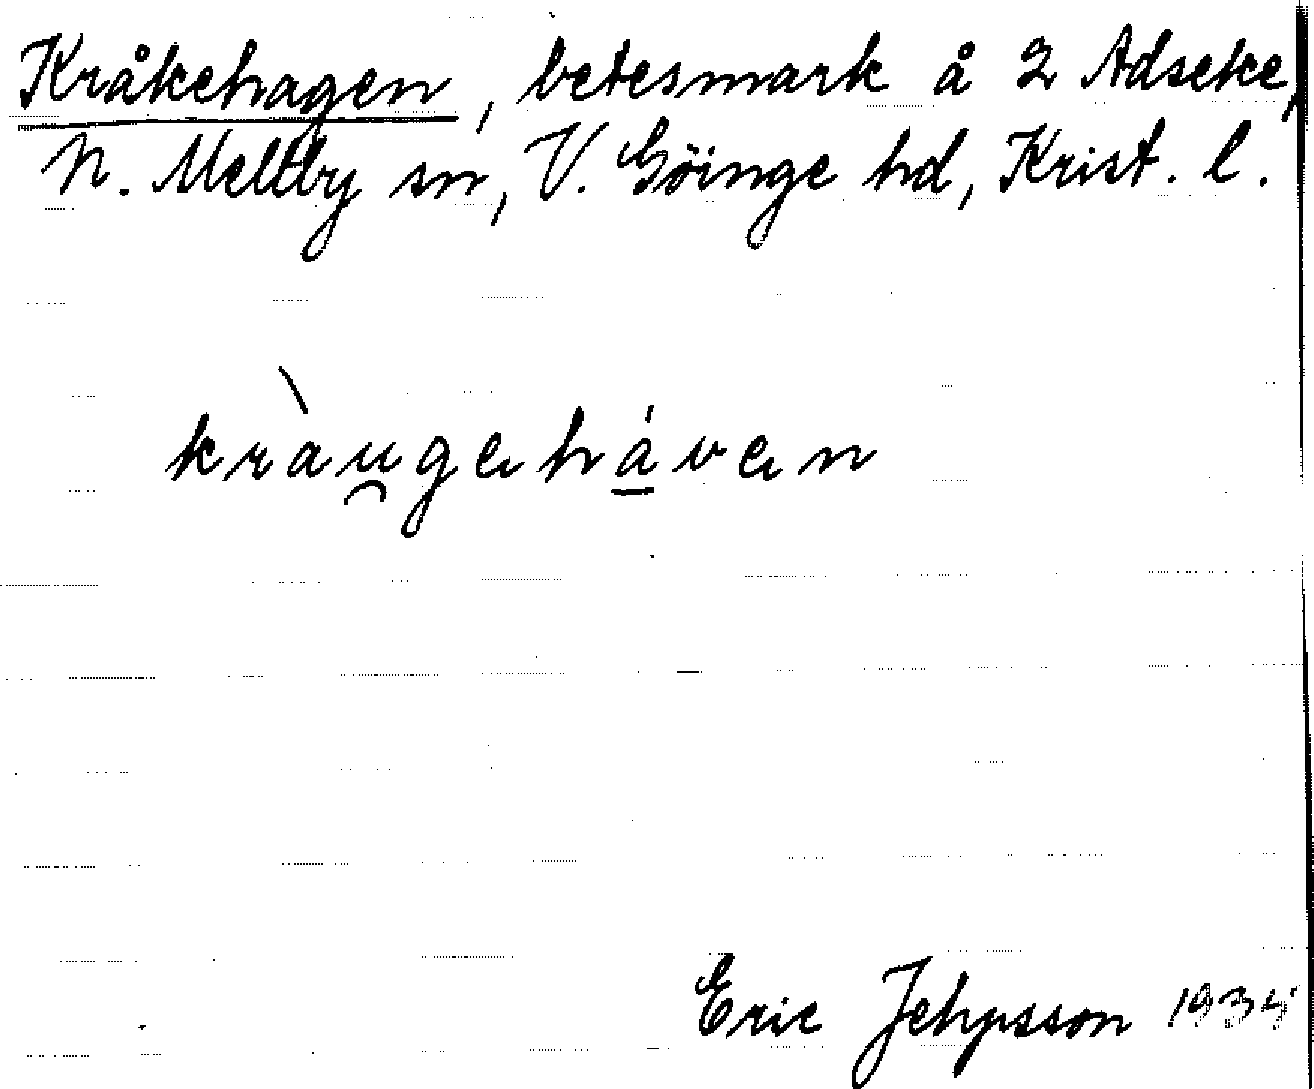 Kråkehagen, betesmark å 2 Adseke,
N. Mellby sn, V. Göinge hd, Krist. l.
kràu̯gehá̱ven
Eric Jehpsson 1935